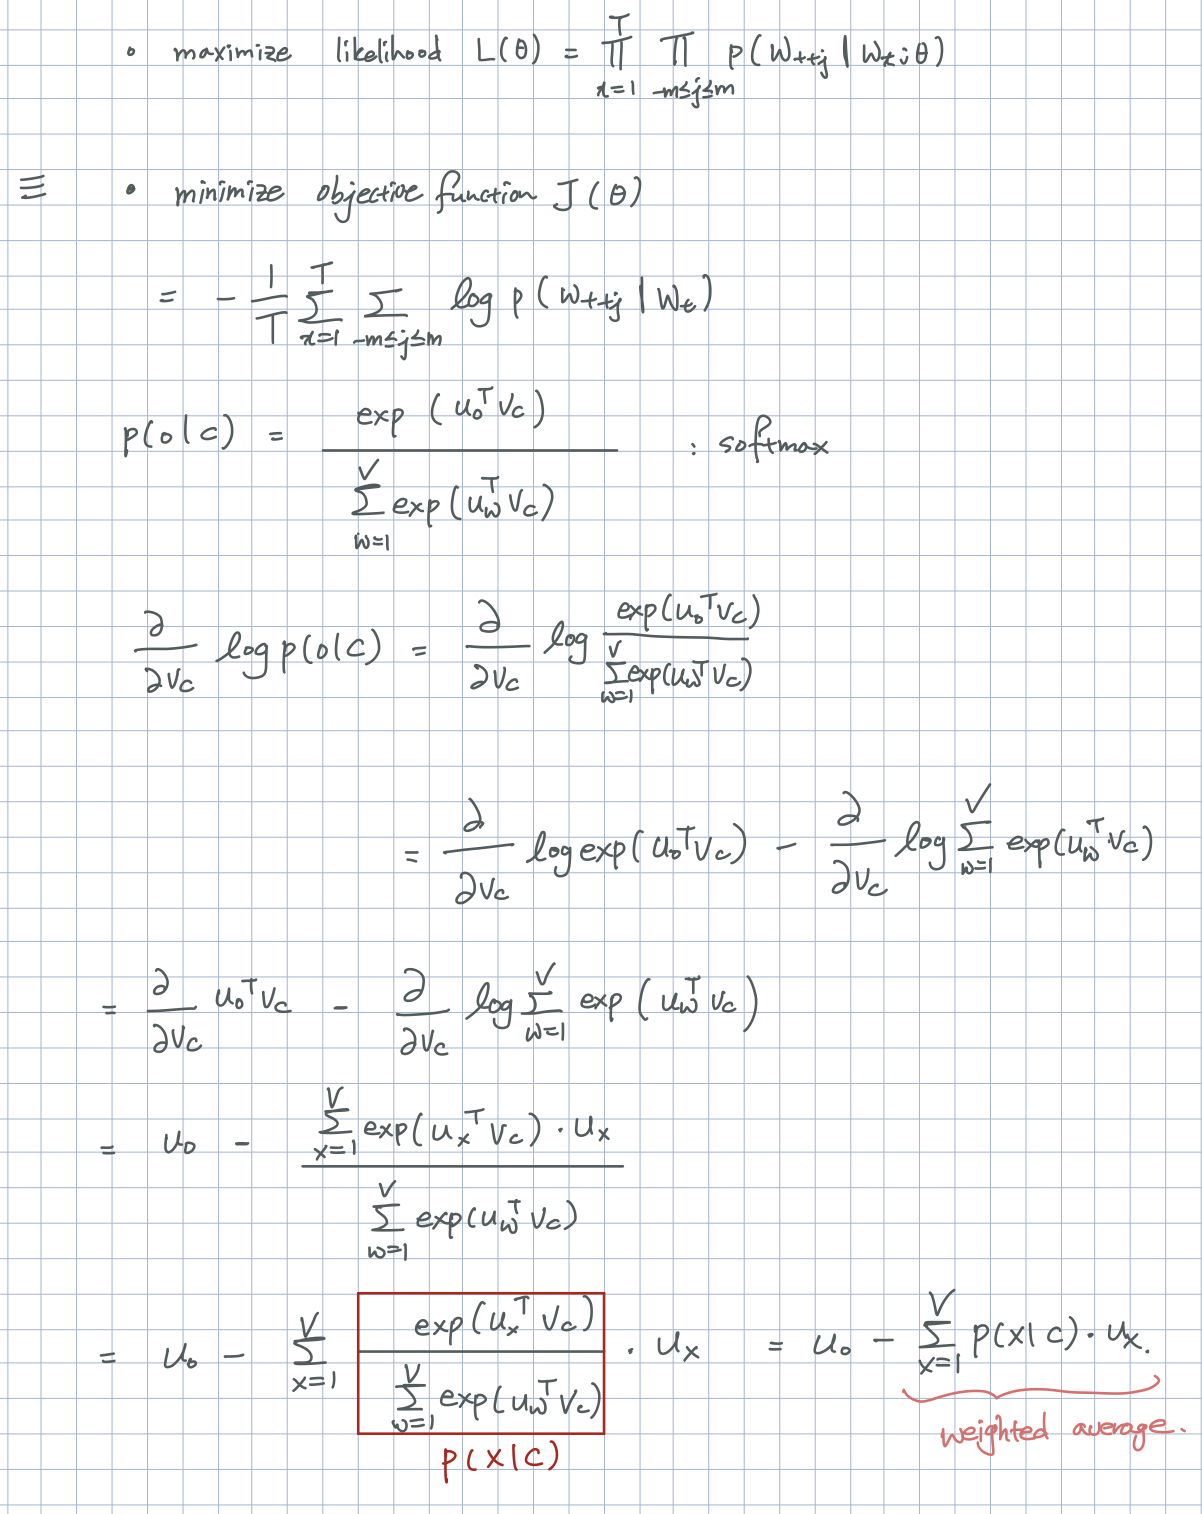 • maximize likelihood L(θ) = ∏_{t=1}^{T} ∏_{-m≤j≤m} p(w_{t+j} | w_t; θ)
≡ • minimize objective function J(θ)
= - 1/T ∑_{t=1}^{T} ∑_{-m≤j≤m} log p(w_{t+j} | w_t)
p(o|c) = exp(u_o^T v_c) / ∑_{w=1}^{V} exp(u_w^T v_c) : softmax
∂/∂v_c log p(o|c) = ∂/∂v_c log exp(u_o^T v_c) / ∑_{w=1}^{V} exp(u_w^T v_c)
= ∂/∂v_c log exp(u_o^T v_c) - ∂/∂v_c log ∑_{w=1}^{V} exp(u_w^T v_c)
= ∂/∂v_c u_o^T v_c - ∂/∂v_c log ∑_{w=1}^{V} exp(u_w^T v_c)
= u_o - ∑_{x=1}^{V} exp(u_x^T v_c) · u_x / ∑_{w=1}^{V} exp(u_w^T v_c)
= u_o - ∑_{x=1}^{V} exp(u_x^T v_c) / ∑_{w=1}^{V} exp(u_w^T v_c) · u_x = u_o - ∑_{x=1}^{V} p(x|c) · u_x.
weighted average.
p(x|c)